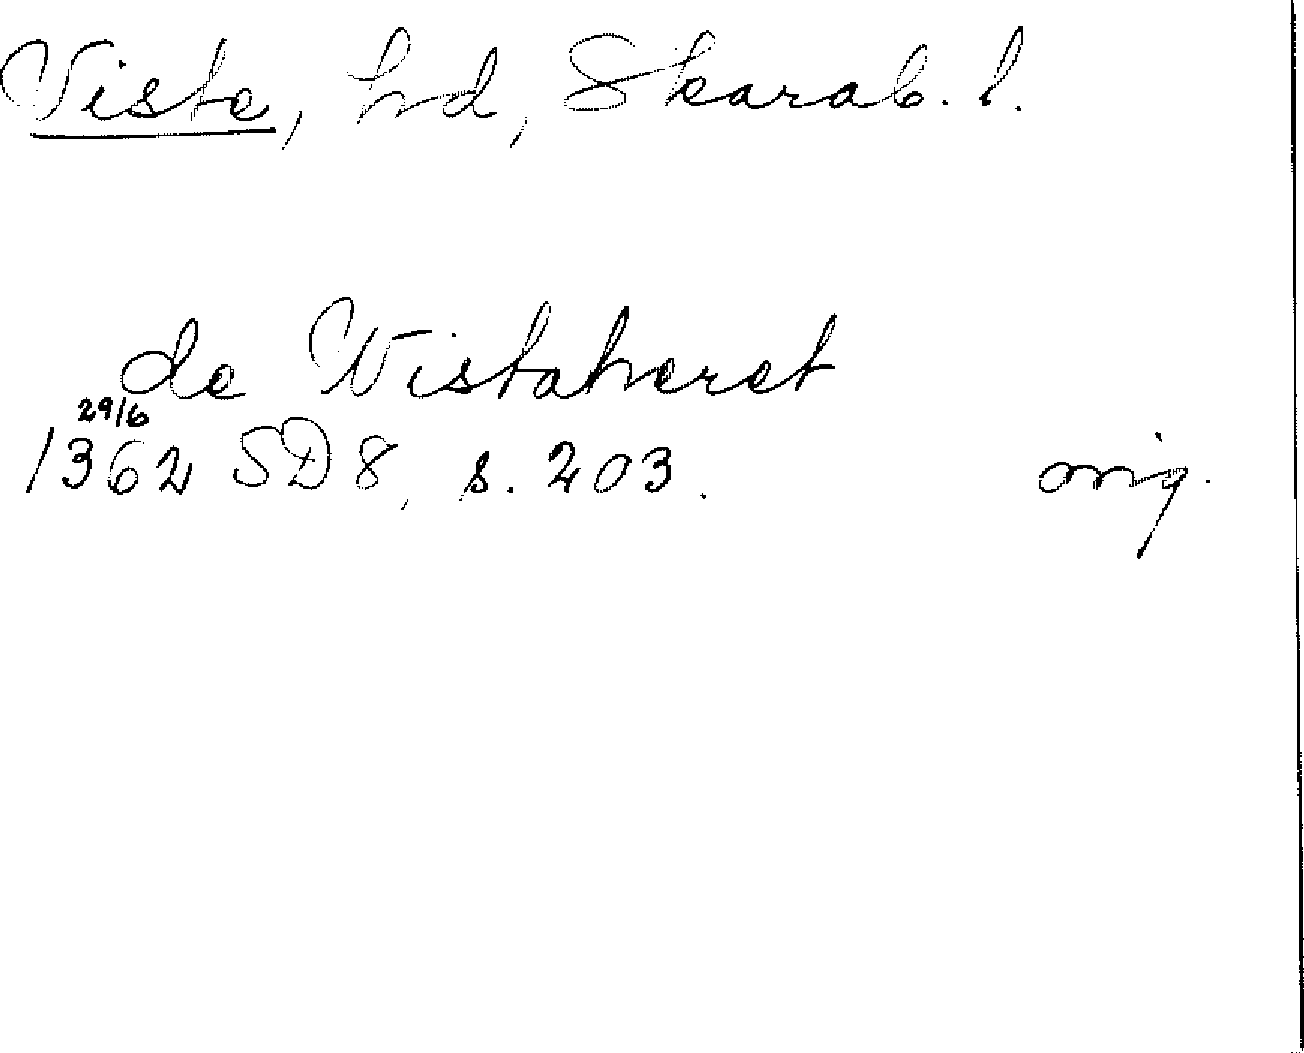 Viste, hd, Skarab. l.
de Wistaheret
29/6
1362 SD 8, s. 203.
orig.